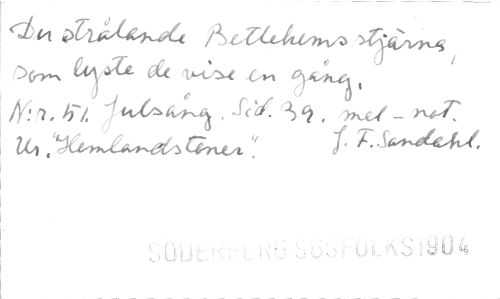 Du strålande Betlehems stjärna,
som lyste de vise en gång.
N:r. 51. Julsång. Sid. 39. mel-not.
Ur "Hemlandstoner". J. F. Sandahl.
SÖDERBERG 1904